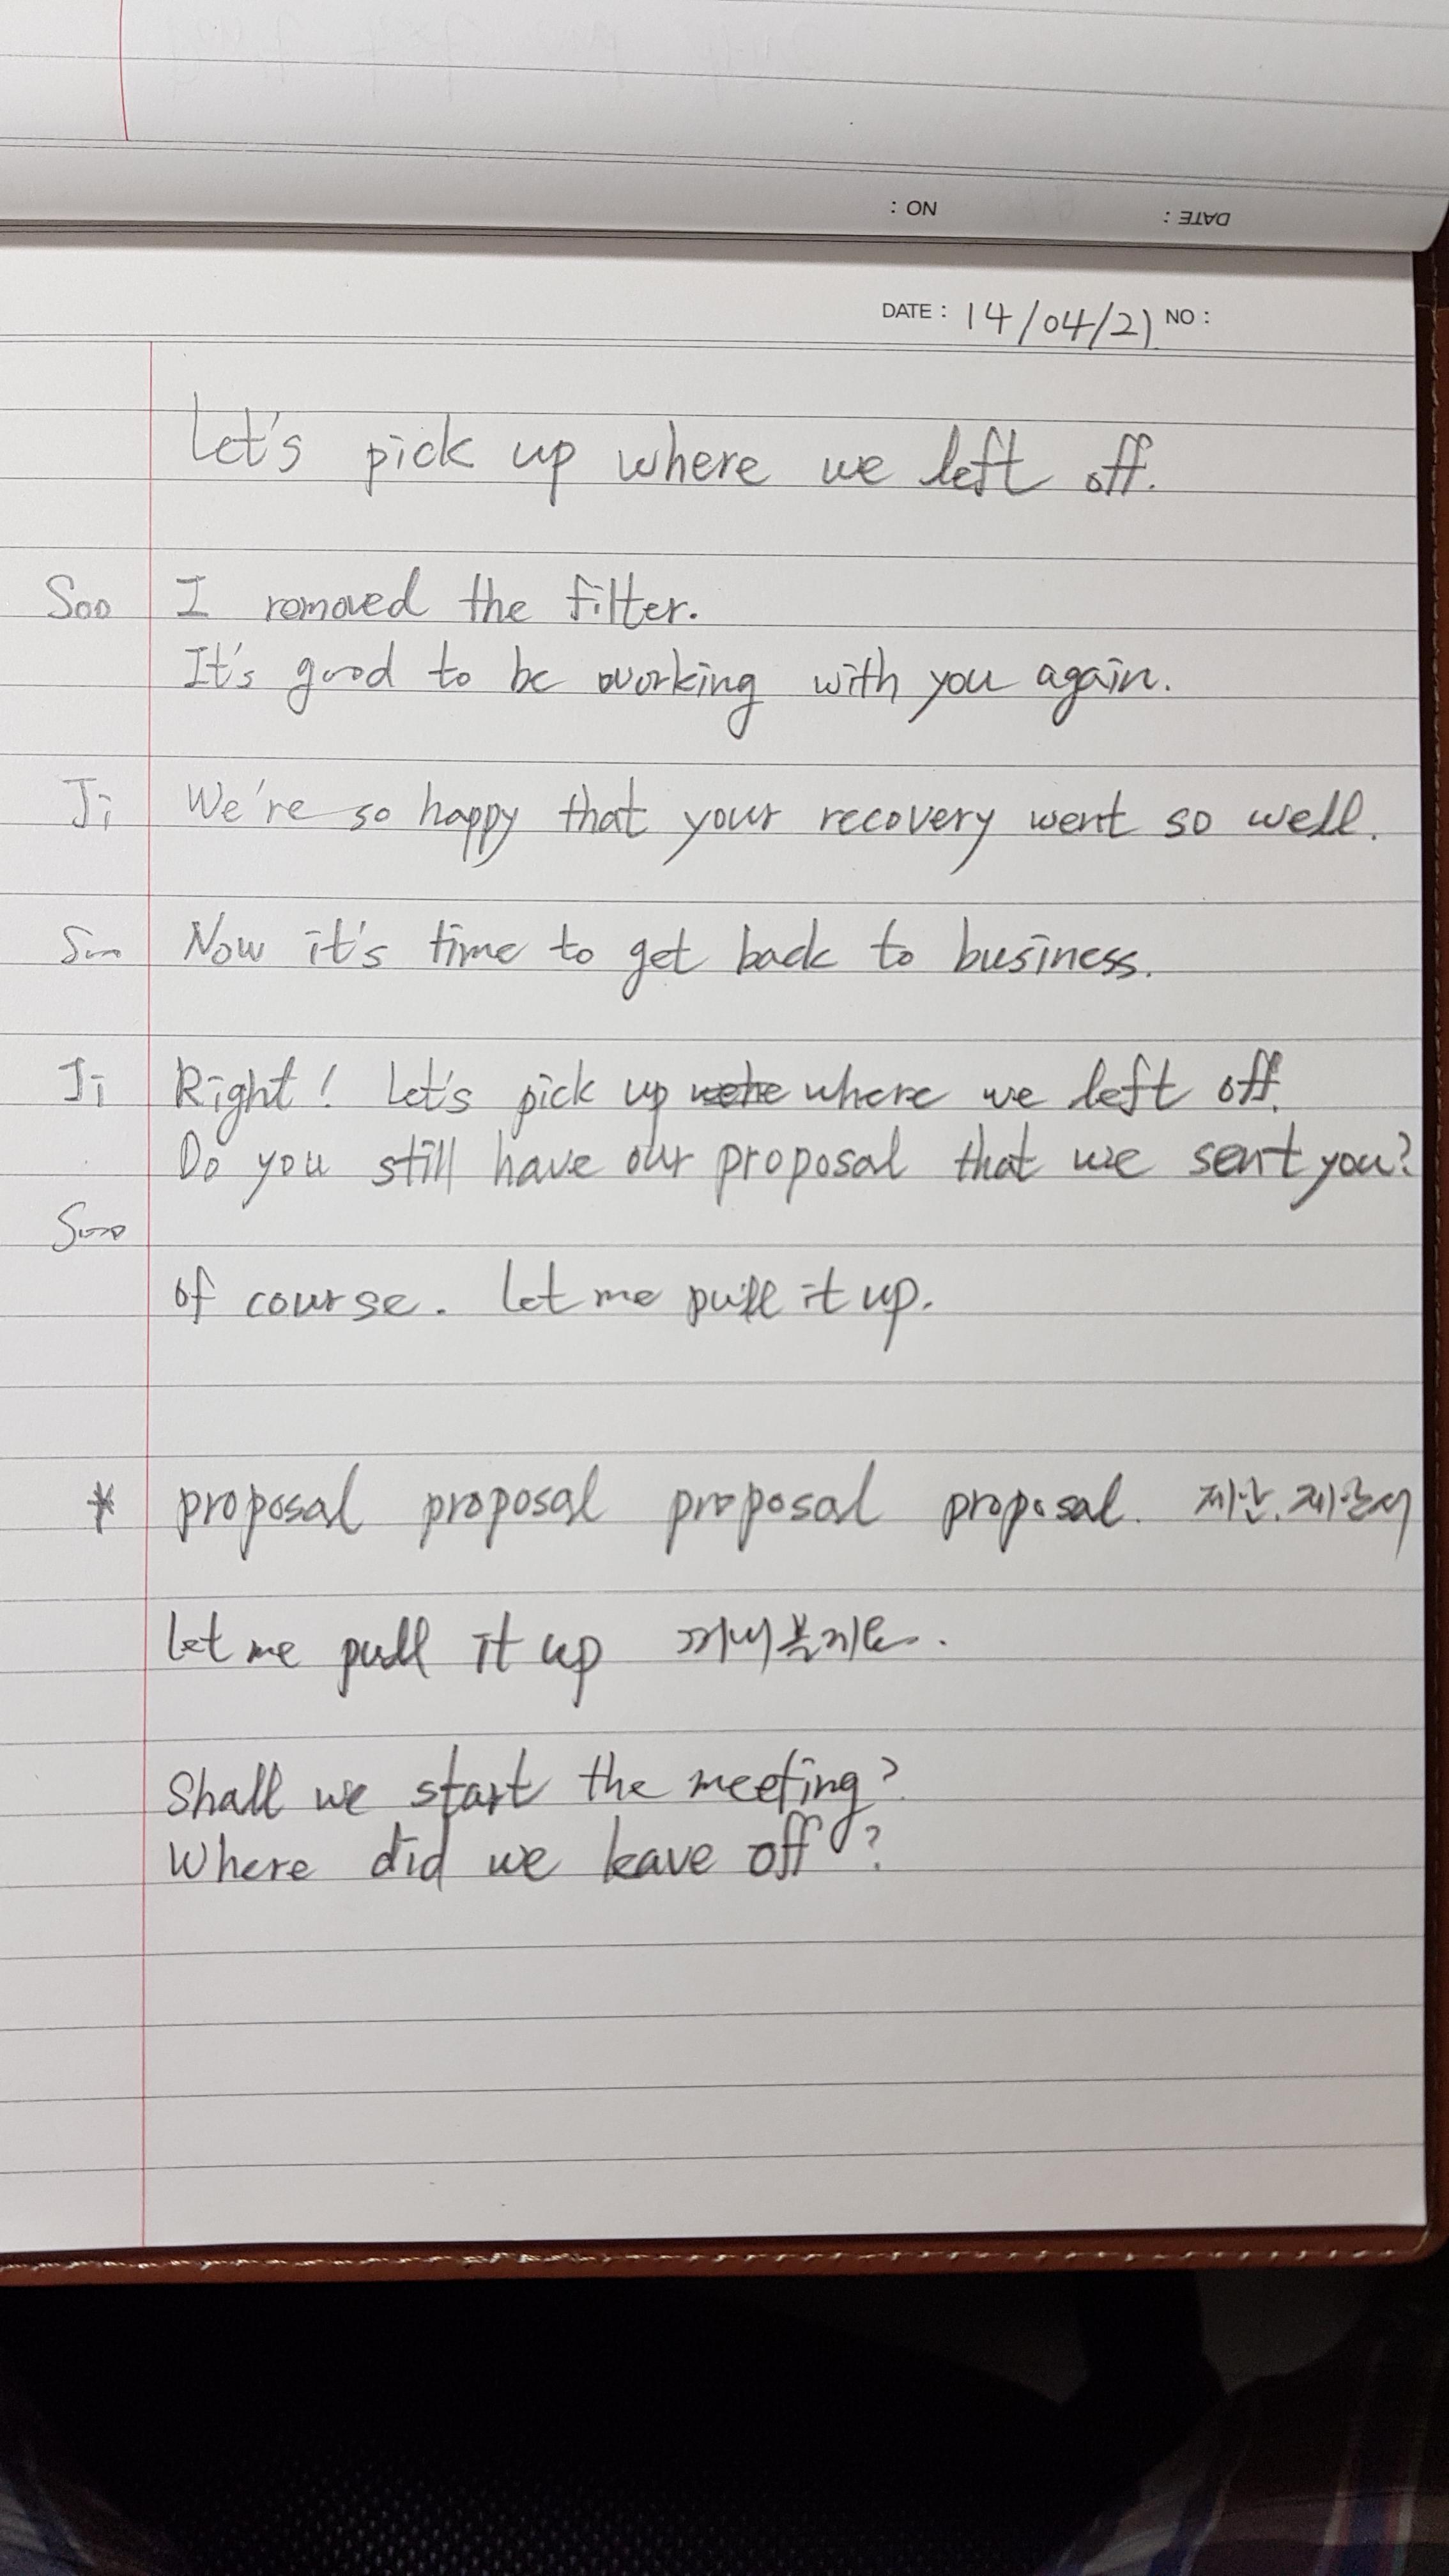 : ON DATE :
DATE : 14/04/21 NO :
Let's pick up where we left off.
Soo I removed the filter.
It's good to be working with you again.
Ji We're so happy that your recovery went so well.
Soo Now it's time to get back to business.
Ji Right! Let's pick up where we left off.
Do you still have our proposal that we sent you?
Soo
of course. Let me pull it up.
* proposal proposal proposal proposal. 제안. 제안서
let me pull it up 꺼내볼게요.
Shall we start the meeting?
Where did we leave off?